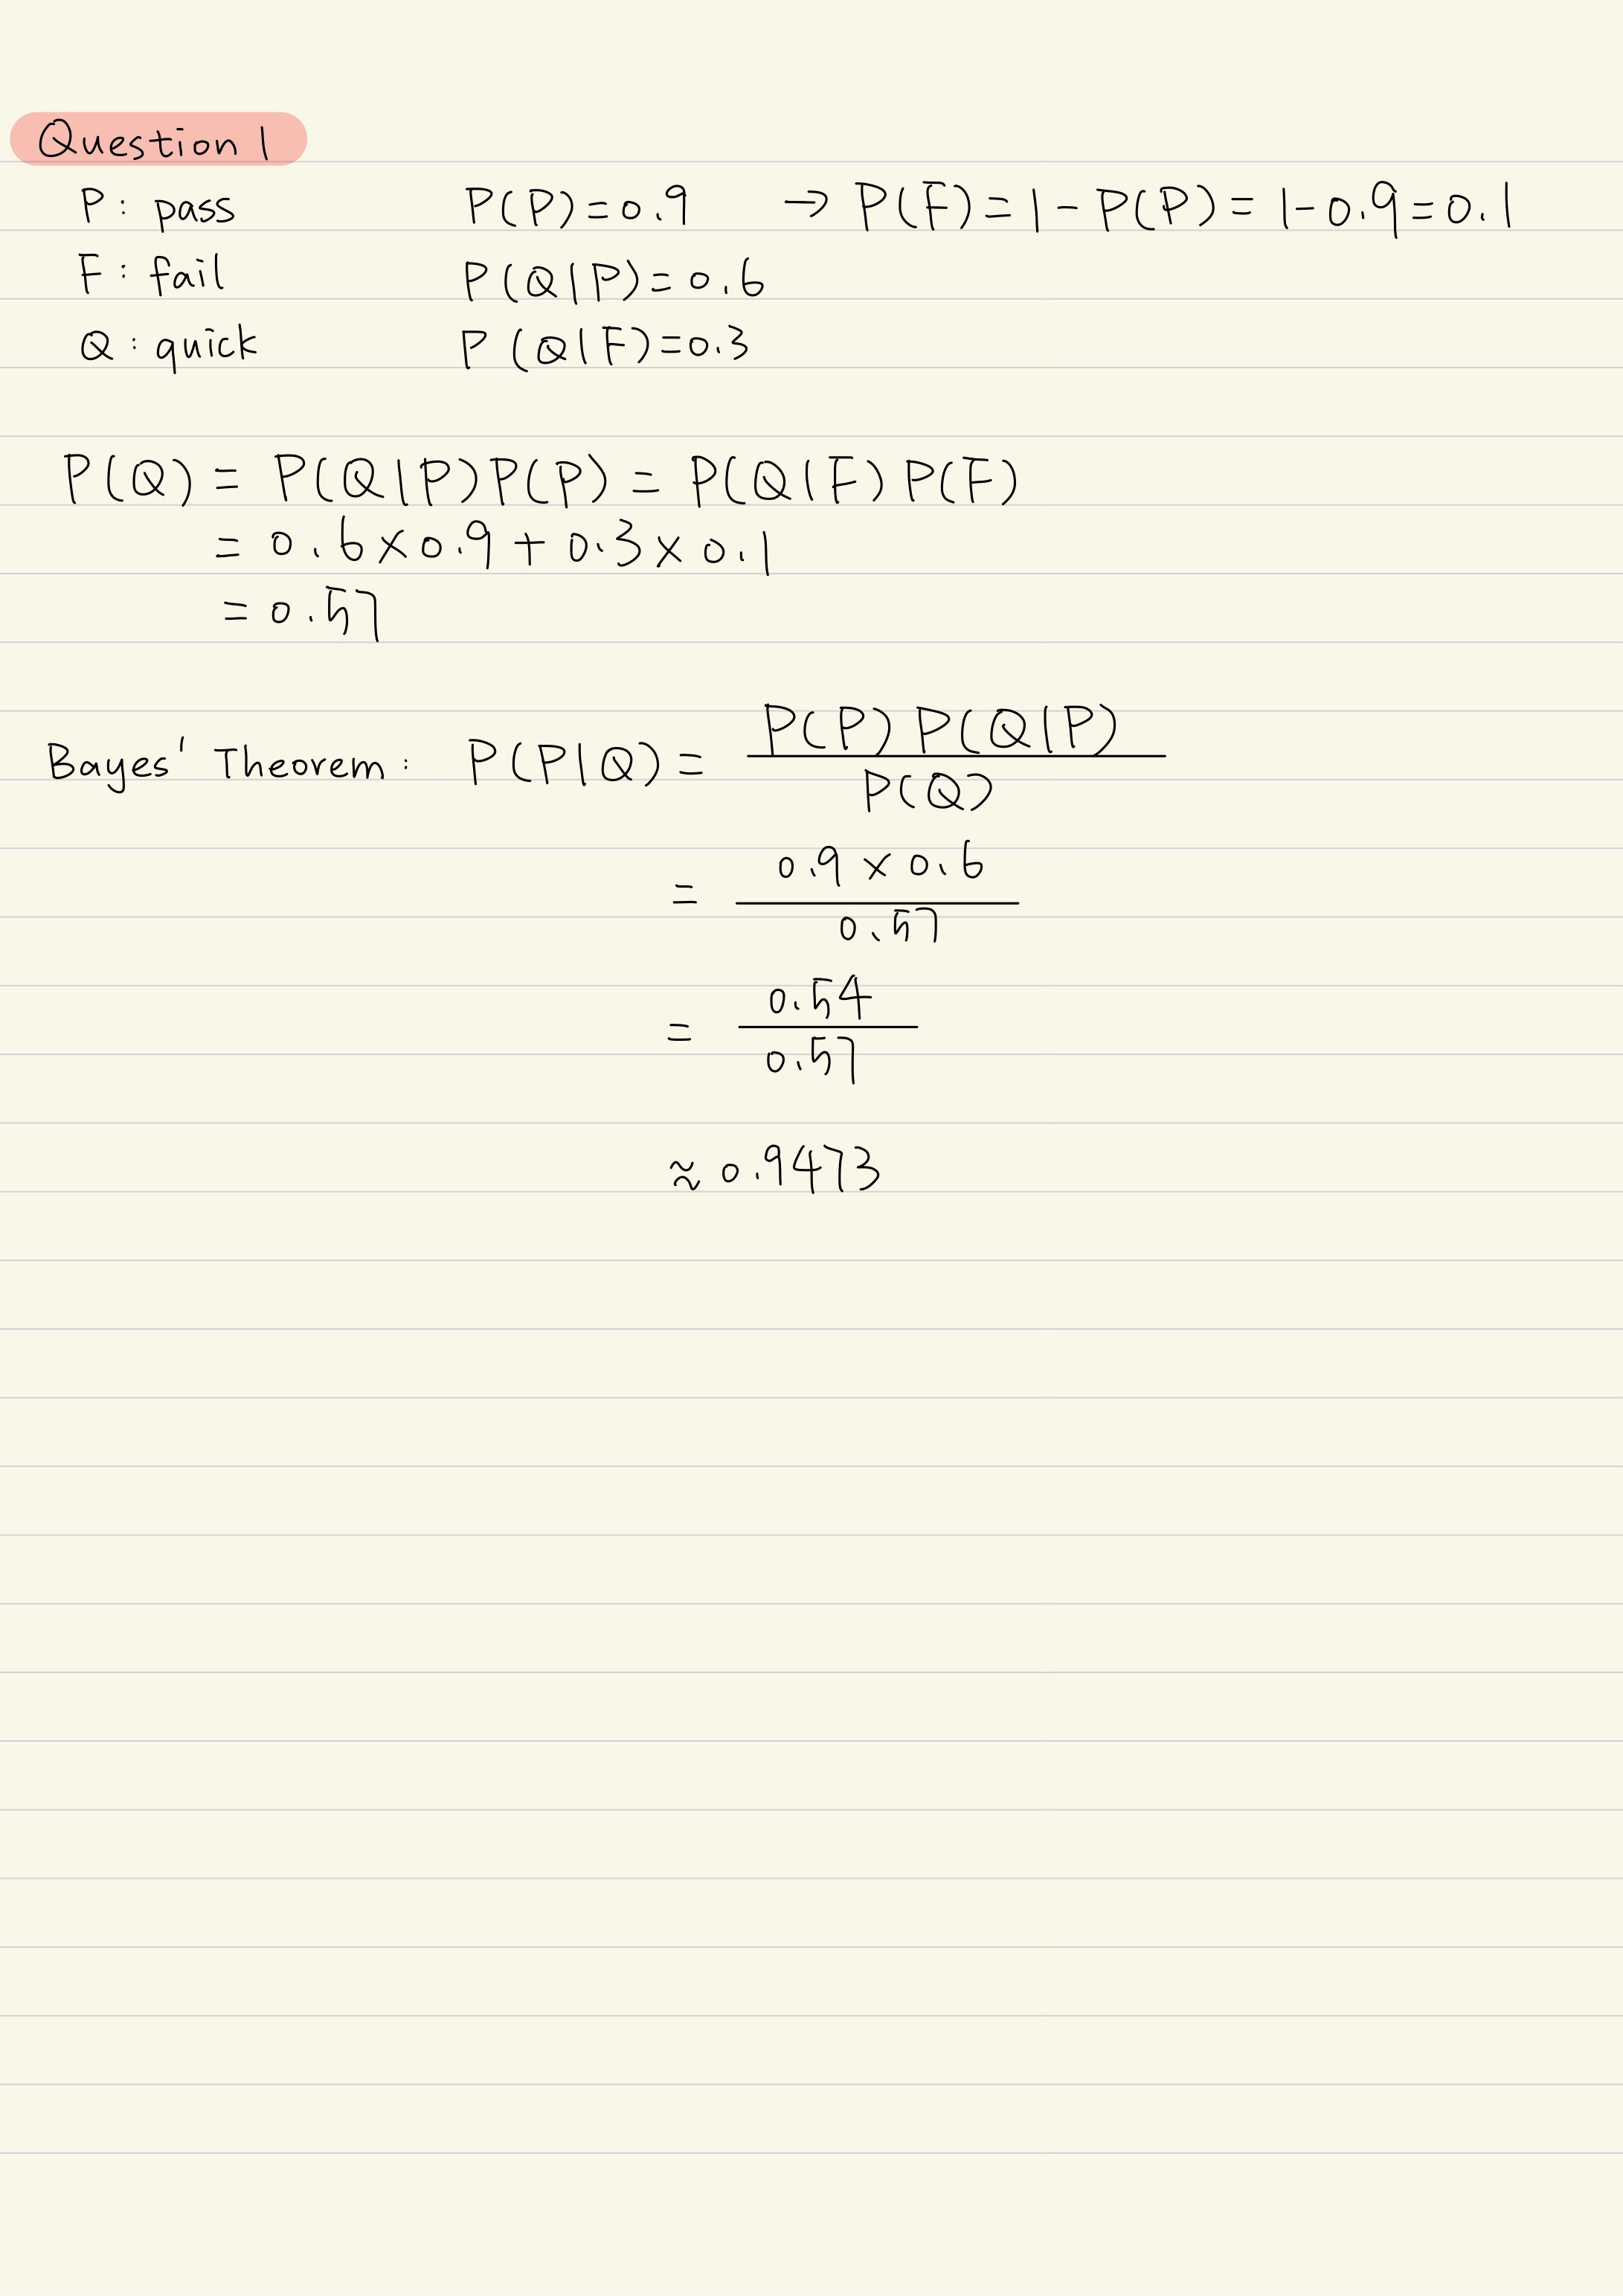 Question 1
P: pass P(P)=0.9 → P(F)=1-P(P)=1-0.9=0.1
F: fail P(Q|P)=0.6
Q: quick P(Q|F)=0.3
P(Q) = P(Q|P)P(P) = P(Q|F)P(F)
= 0.6×0.9+0.3×0.1
= 0.57
Bayes' Theorem: P(P|Q) = P(P)P(Q|P) / P(Q)
= 0.9×0.6 / 0.57
= 0.54 / 0.57
≈ 0.9473